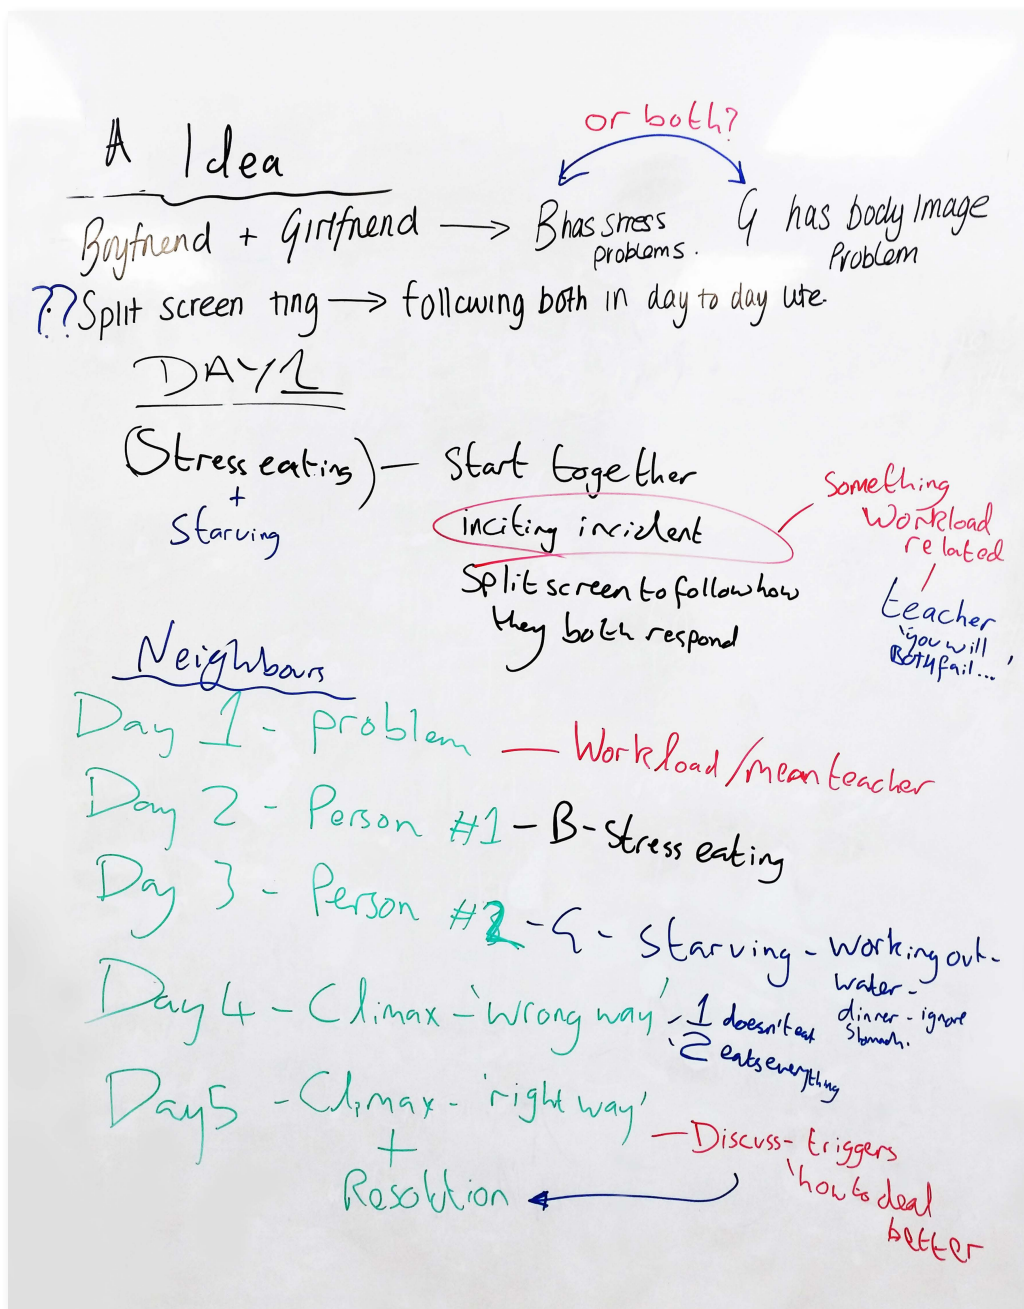 or both?
A Idea
Boyfriend + Girlfriend → B has stress problems. G has body Image Problem
?? Split screen ting → following both in day to day life.
DAY 1
(Stress eating) — Start together
+
Starving
inciting incident
Something
Workload
related
Split screen to follow how
they both respond
teacher
"you will
Both fail...'
Neighbours
Day 1 - problem — Workload/mean teacher
Day 2 - Person #1 - B - Stress eating
Day 3 - Person #2 - G - Starving - Working out -
water -
dinner - ignore
stomach.
Day 4 - Climax - 'wrong way' - 1 doesn't eat
2 eats everything
Day 5 - Climax - 'right way' — Discuss - triggers
+
Resolution
how to deal
better